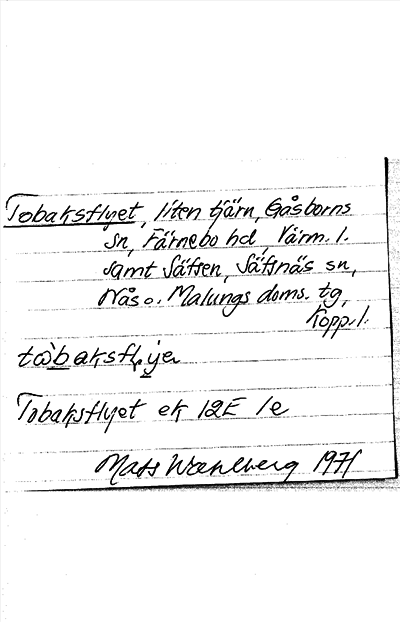 Tobaksflyet, liten tjärn, Gåsborns
sn, Färnebo hd, Värm. l.
samt Säfsen, Säfsnäs sn,
Nås o. Malungs doms. tg,
Kopp. l.
Tobaksflyet ek 12E 1e
Mats Wahlberg 1971